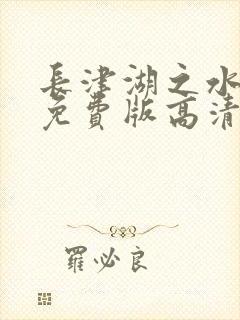 長津湖之水
免費版高清
羅必良